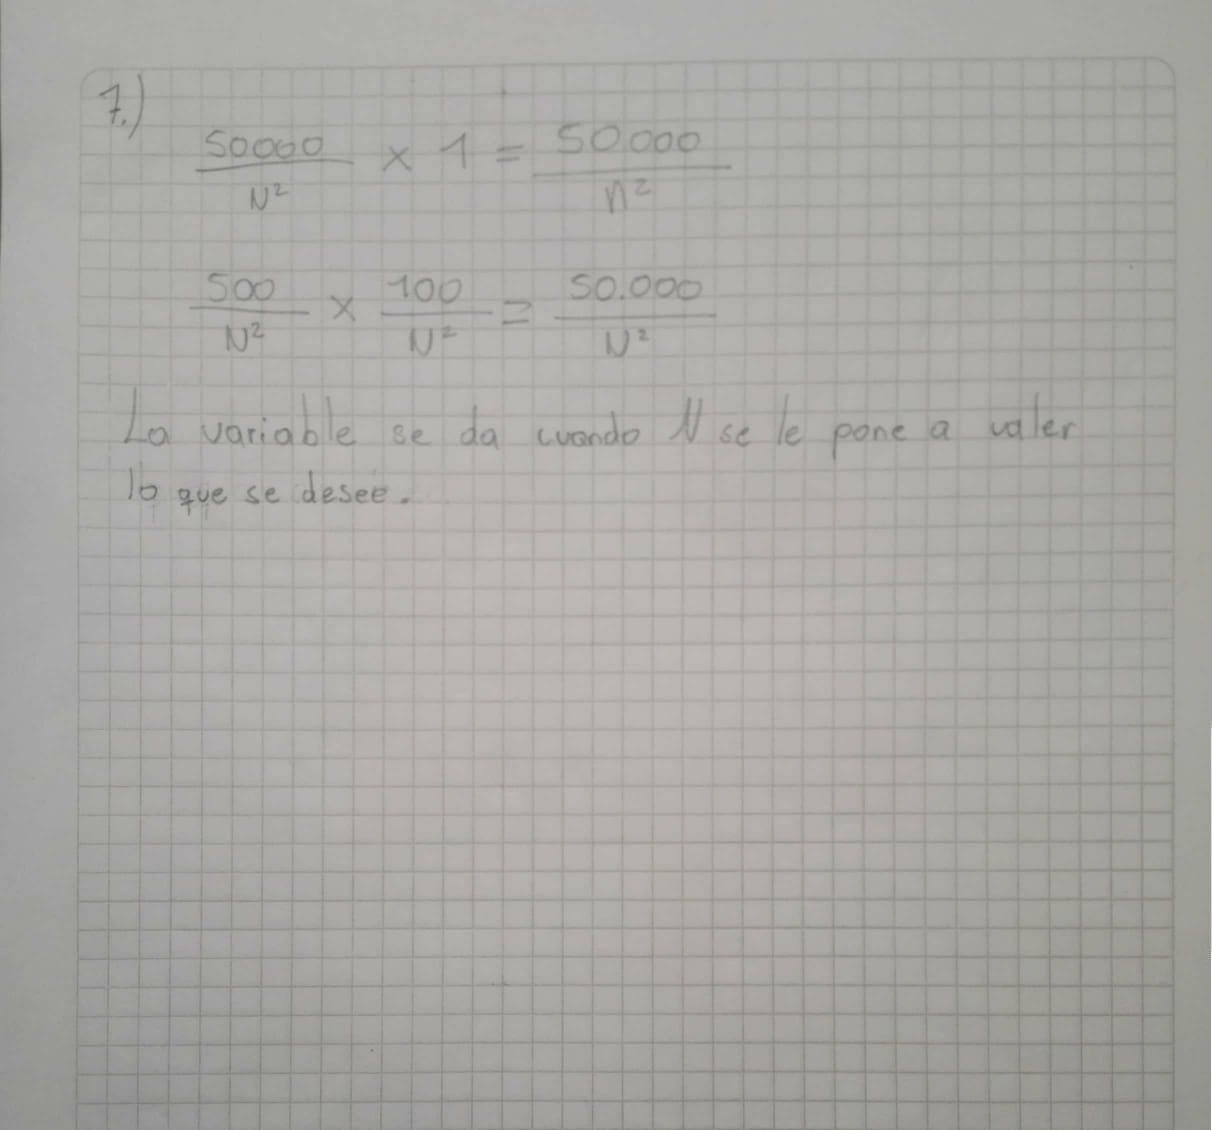 7.)
50000/N² × 1 = 50.000/n²
500/N² × 100/N² = 50.000/N²
La variable se da cuando N se le pone a valer
lo que se desee.